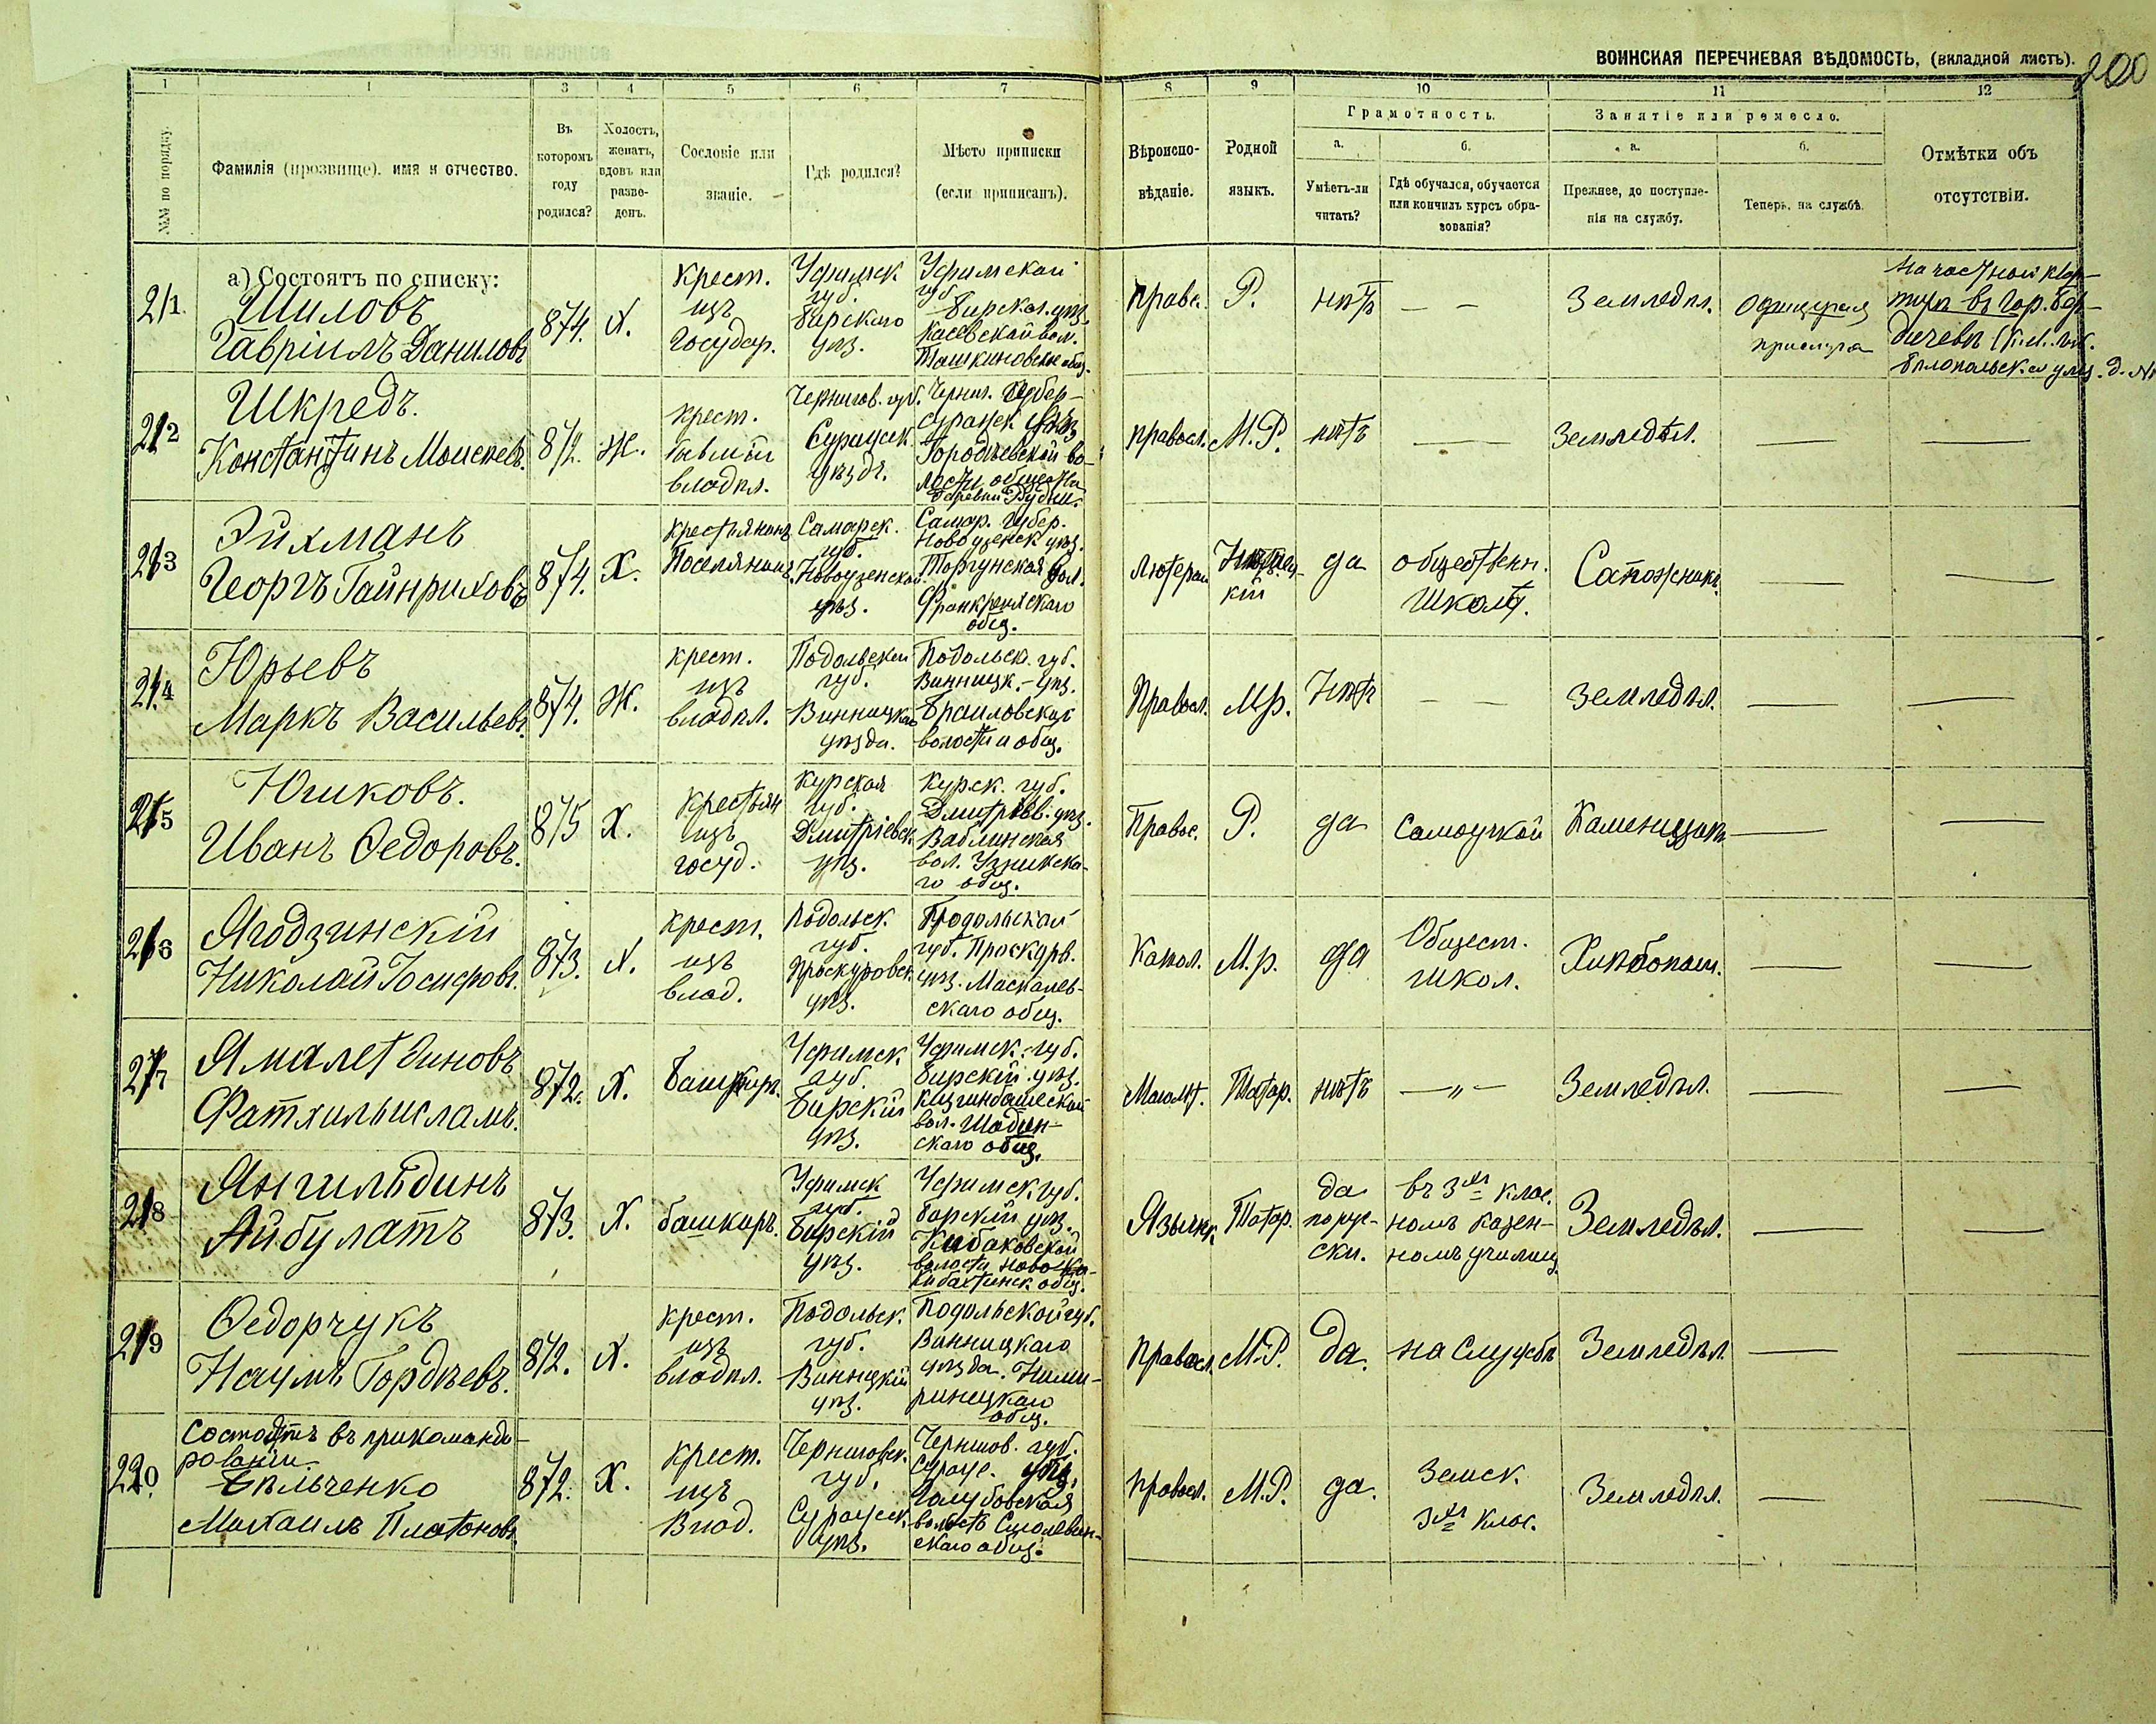 ВОИНСКАЯ ПЕРЕЧНЕВАЯ ВѢДОМОСТЬ, (вкладной листъ).
200
1
1
3
4
5
6
7
8
9
10
11
12
№№ по порядку.
Фамилія (прозвище), имя и отчество.
Въ которомъ году родился?
Холостъ, женатъ, вдовъ или разведенъ.
Сословіе или званіе.
Гдѣ родился?
Мѣсто приписки (если приписанъ).
Вѣроисповѣданіе.
Родной языкъ.
Грамотность.
а.
Умѣетъ-ли читать?
б.
Гдѣ обучался, обучается или кончилъ курсъ образованія?
Занятіе или ремесло.
а.
Прежнее, до поступленія на службу.
б.
Теперь, на службѣ.
Отмѣтки объ отсутствіи.
а) Состоятъ по списку:
211
Шиловъ
Гавріилъ Даниловъ
874.
Х.
Крест.
изъ
Государ.
Уфимск
губ.
Бирскаго
уѣз.
Уфимской
губ
Бирскаго уѣз.
Касевской вол.
Ташкиновское общ.
Правс.
Р.
нѣтъ
— —
Земледѣл.
Офицерская
прислуга
На частной квар-
тирѣ въ гор. Бер-
дичевѣ
Бѣлопольск. ул. д. №
212
Шкредъ.
Константинъ Моисеевъ.
872.
Ж.
крест.
владѣл.
Чернигов. губ.
Суражск
уѣздъ.
Черниг. Губер-
Суражск уѣз
Городѣевской во-
лости общества
деревни
Правосл.
М.Р.
нѣтъ
—
Земледѣл.
—
—
213
Эйхманъ
Георгъ Гайнриховъ
874.
Х.
Крестьянинъ
Поселянинъ.
Самарск.
губ.
Новоузенской
уѣз.
Самар. Губер.
Новоузенск уѣз.
Торгунская вол.
общ.
Лютеран
Нѣмец-
кій
да
обществен.
школѣ.
Сапожникъ
—
—
214
Юрьевъ
Маркъ Васильевъ
874.
Ж.
крест.
изъ
владѣл.
Подольской
губ.
Винницкаго
уѣзда.
Подольск. губ.
Винницк. уѣз.
Браиловской
волости и общ.
Правосл.
М.р.
Нѣтъ
— —
Земледѣл.
—
—
215
Юшковъ.
Иванъ Ѳедоровъ.
875
Х.
Крестьян
изъ
госуд.
Курская
губ.
Дмитріевск.
уѣз.
Курск. губ.
Дмитріев. уѣз.
Ваблинская
вол.
го общ.
Правос.
Р.
да
Самоучкой
Каменщикъ
—
—
216
Ягодзинскій
Николай Іосифовъ.
873.
Х.
крест.
изъ
влад.
Подольск.
губ.
Проскуровск.
уѣз.
Подольской
губ. Проскуров.
уѣз. Маскалев-
скаго общ.
Катол.
М.р.
да
Общест.
школ.
Хлѣбопаш.
—
—
217
Ямалетдиновъ
Фатхильисламъ.
872.
Х.
Башкиръ.
Уфимск.
губ.
Бирскій
уѣз.
Уфимск. губ.
Бирскій уѣз.
вол.
скаго общ.
Магомет.
Татар.
нѣтъ
—„—
Земледѣл.
—
—
218
Янгильдинъ
Айбулатъ
873.
Х.
башкиръ.
Уфимск
губ.
Бирскій
уѣз.
Уфимск. губ.
Бирскій уѣз.
волости
общ.
Язычн.
Татар.
да
по рус-
ски.
въ 3хъ клас.
номъ казен-
номъ училищ.
Земледѣл.
—
—
219
Ѳедорчукъ
Наумъ Гордѣевъ.
872.
Х.
крест.
изъ
владѣл.
Подольск.
губ.
Винницкій
уѣз.
Подольской губ.
Винницкаго
уѣзда.
общ.
Правосл.
М.Р.
да.
на службѣ
Земледѣл.
—
—
Состоитъ въ прикоманди-
рованіи
220.
Бѣльченко
Михаилъ Платоновъ.
872.
Х.
крест.
изъ
Влад.
Черниговск.
губ.
Суражск.
уѣз.
Чернигов. губ.
Сураж. уѣз.
волость
скаго общ.
Правосл.
М.Р.
да.
Земск.
3хъ клас.
Земледѣл.
—
—